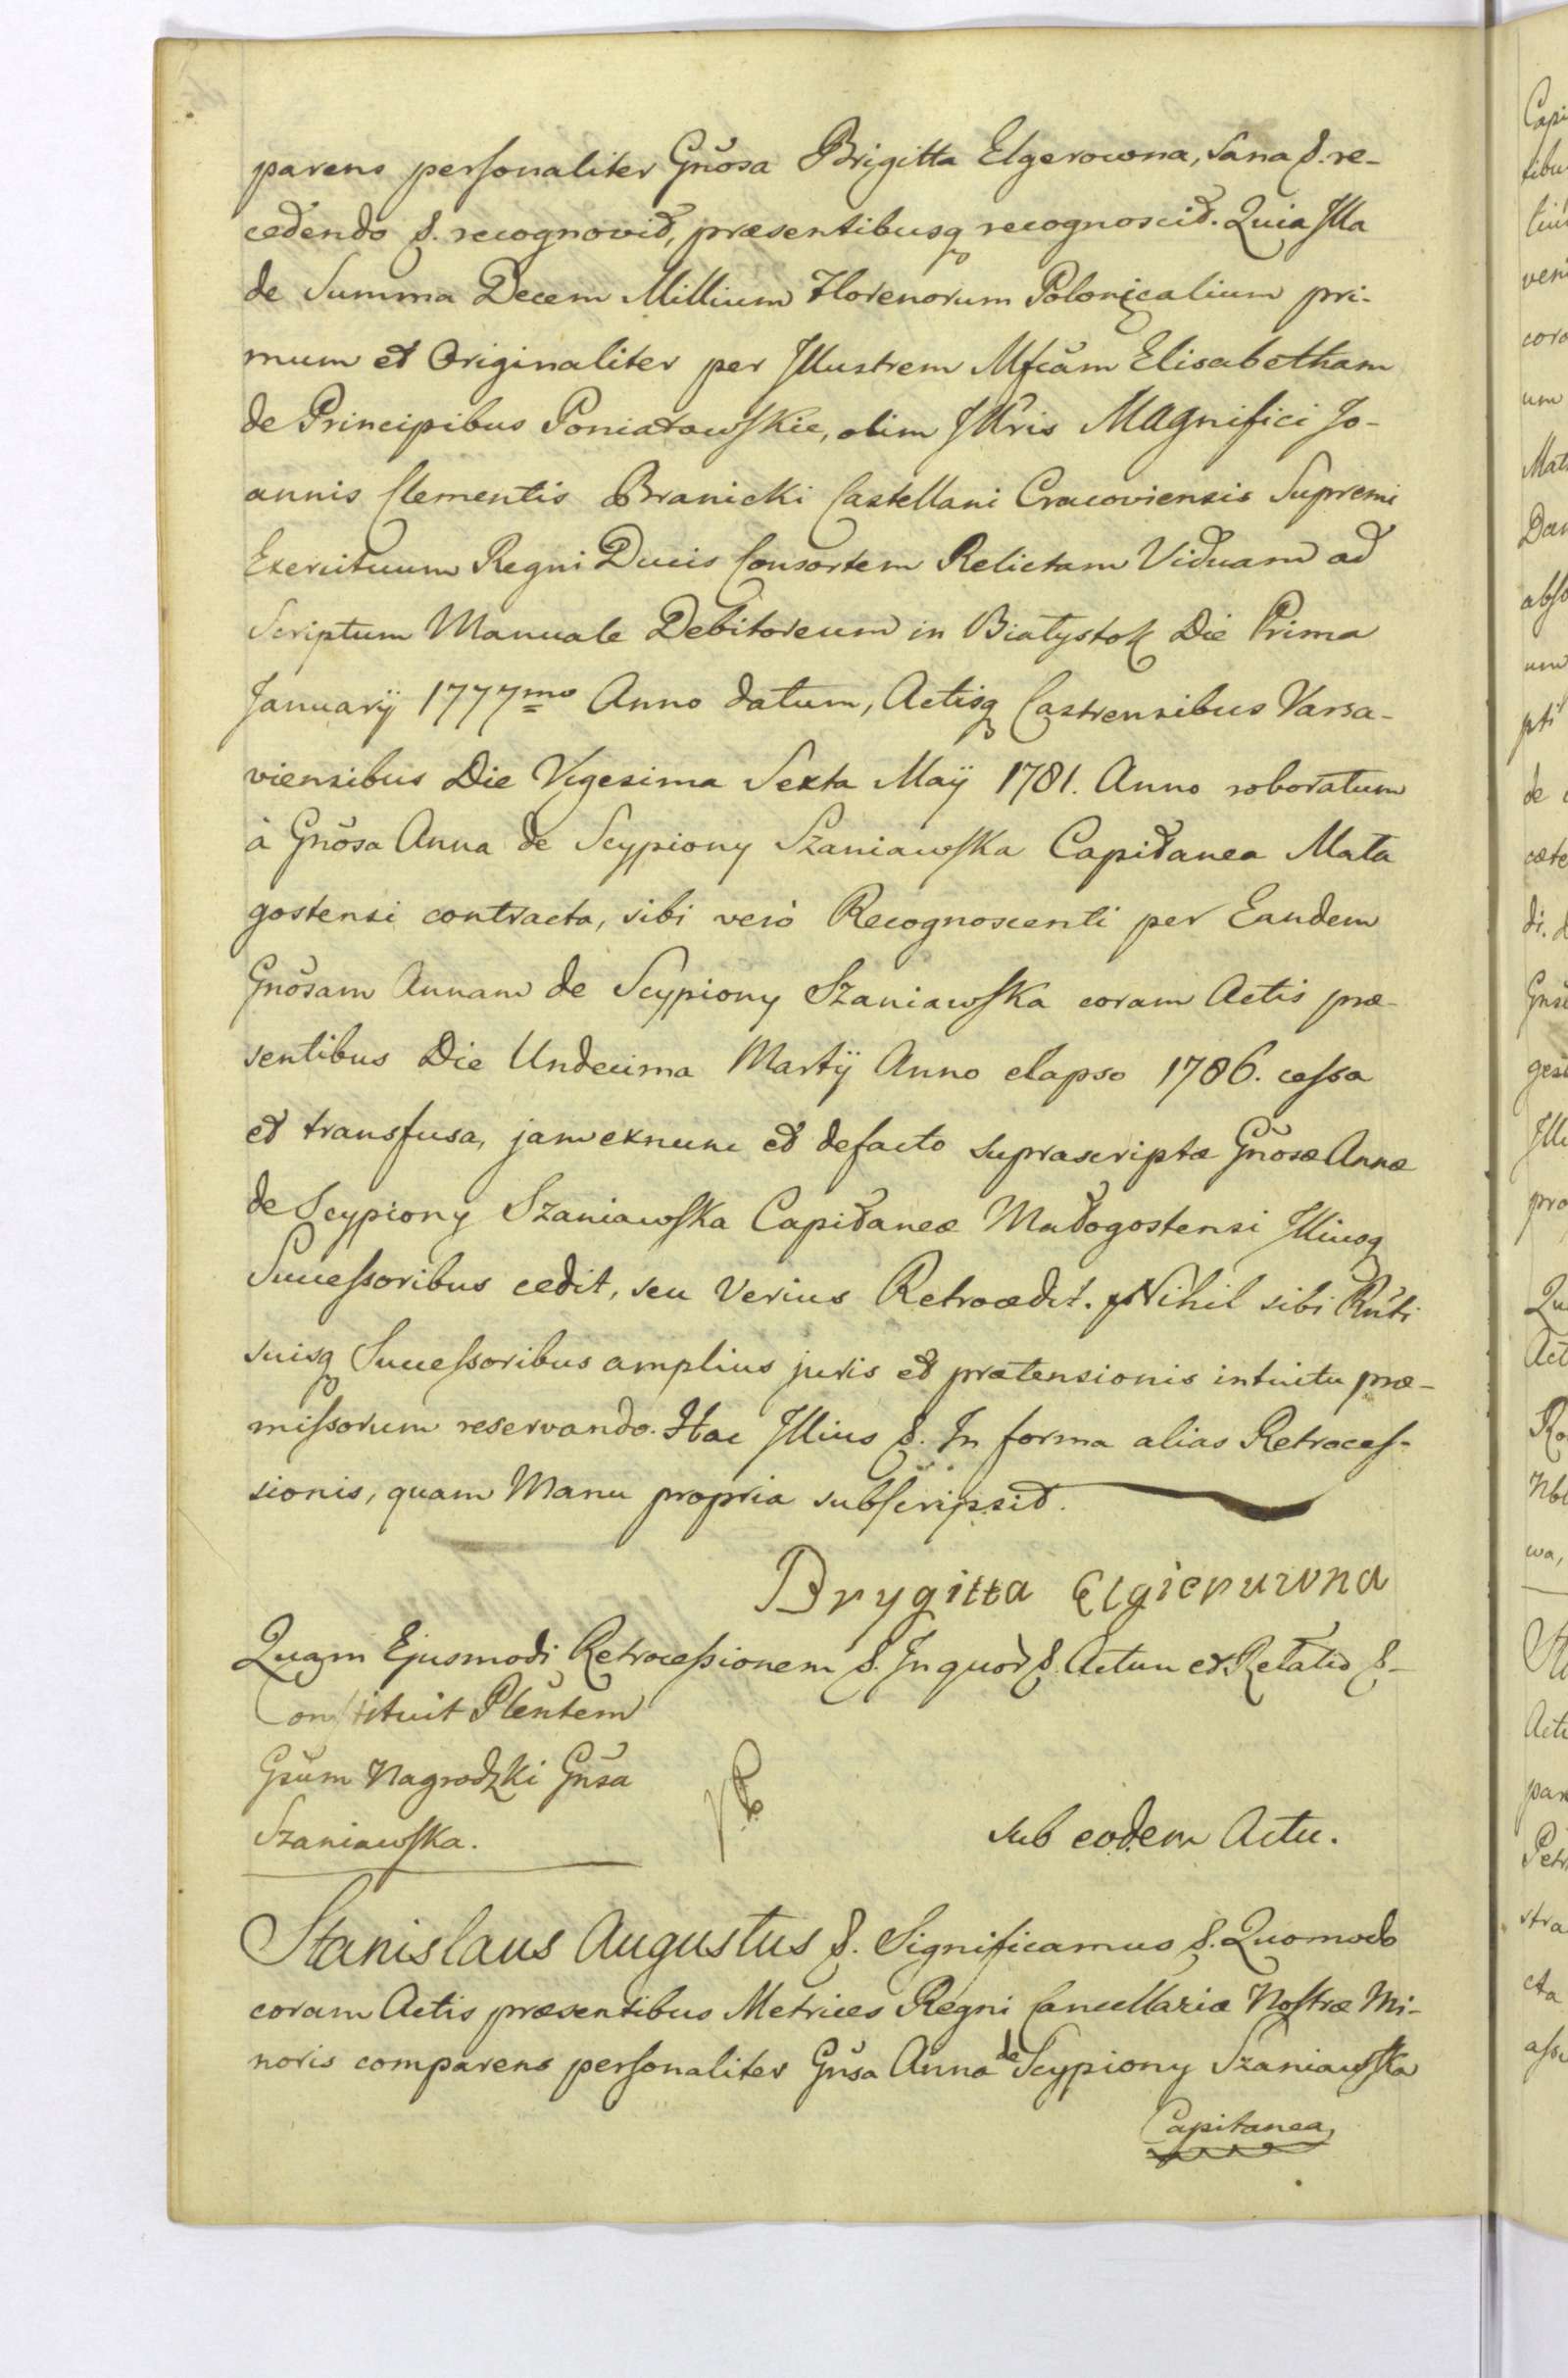 parens personaliter Gnõsa Brigitta Elgerowna, Sana &. re-
cedendo &. recognovit, præsentibusq recognoscit. Quia Illa
de Summa Decem Millium Florenorum Polonicalium pri-
mum et Originaliter per Illustrem Mfcam Elisabetham
de Principibus Poniatowskie, olim Illris Magnifici Jo-
annis Clementis Branicki Castellani Cracoviensis Supremi
Exercituum Regni Ducis Consortem Relictam Viduam ad
Scriptum Manuale Debitoreum in Białystok Die Prima
Januarÿ 1777mo Anno datum, Actisq Castrensibus Varsa-
viensibus Die Vigesima Sexta Maÿ 1781. Anno roboratum
à Gnõsa Anna de Scypiony Szaniawska Capitanea Mała
gostensi contracta, sibi verò Recognoscenti per Eandem
Gnõsam Annam de Scypiony Szaniawska coram Actis præ-
sentibus Die Undecima Martÿ Anno elapso 1786. cessa
et transfusa, jam exnunc et defacto suprascriptæ Gnõsæ Annæ
de Scypiony Szaniawska Capitaneæ Małogostensi Illiusq
Successoribus cedit, seu verius Retrocedit. Nihil sibi Rñti
suisq Successoribus amplius juris et prætensionis intuitu præ-
missorum reservando. Hac Illius &. In forma alias Retroces-
sionis, quam Manu propria subscripsit.
Brygitta Elgieruwna
Quam Ejusmodi Retrocessionem &. In quod &. Actum et Relatio &-
Constituit Plentem
Gsum Nagrodzki Gnsa
Szaniawska.
sub eodem Actu.
Stanislaus Augustus &. Significamus &. Quomodo
coram Actis præsentibus Metrices Regni Cancellariæ Nostræ Mi-
noris comparens personaliter Gnsa Anna de Scypiony Szaniawska
Capitanea